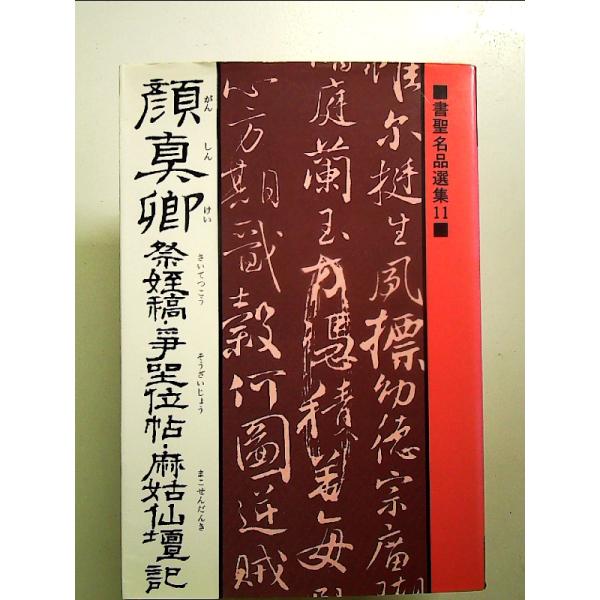 ■書聖名品選集11■
惟爾挺生夙標幼德宗廟瑚
階庭蘭玉方憑積善每
心方期戩穀何圖逆賊
顔真卿
がん しん けい
祭姪稿・爭坐位帖・麻姑仙壇記
さいてつこう
そうざいじょう
まこせんだんき